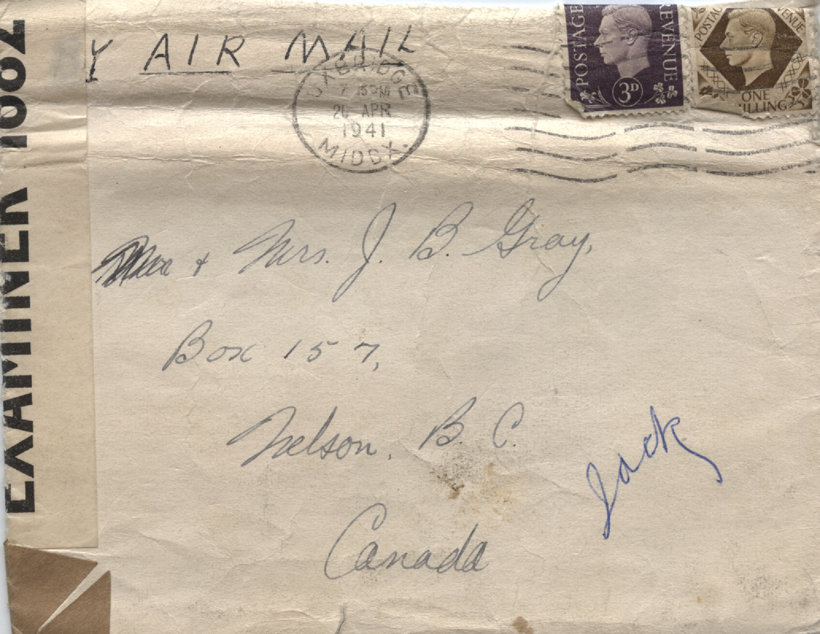 Y AIR MAIL
UXBRIDGE
7 15 PM
20 APR
1941
MIDDX.
POSTAGE REVENUE
3D
POSTAGE REVENUE
ONE
ILLING
EXAMINER 1682
& Mrs. J. B. Gray,
Box 157,
Nelson, B. C.
Jack
Canada